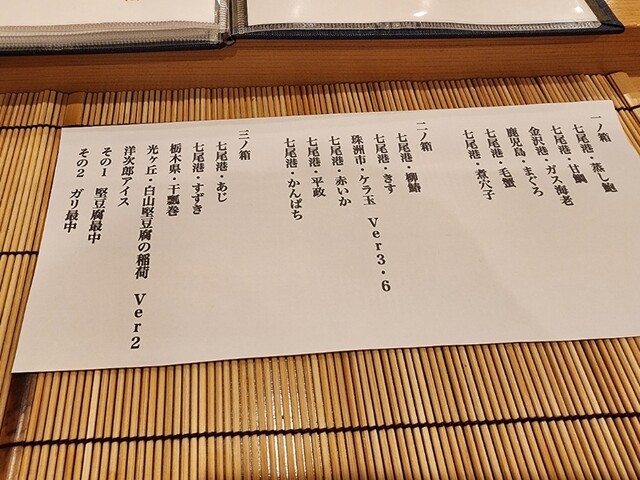 一ノ箱
七尾港・蒸し鮑
七尾港・甘鯛
金沢港・ガス海老
鹿児島・まぐろ
七尾港・毛蟹
七尾港・煮穴子
二ノ箱
七尾港・柳鰆
七尾港・きす
珠洲市・ケラ玉 Ver3・6
七尾港・赤いか
七尾港・平政
七尾港・かんぱち
三ノ箱
七尾港・あじ
七尾港・すずき
栃木県・干瓢巻
光ヶ丘・白山堅豆腐の稲荷 Ver2
洋次郎アイス
その1 堅豆腐最中
その2 ガリ最中